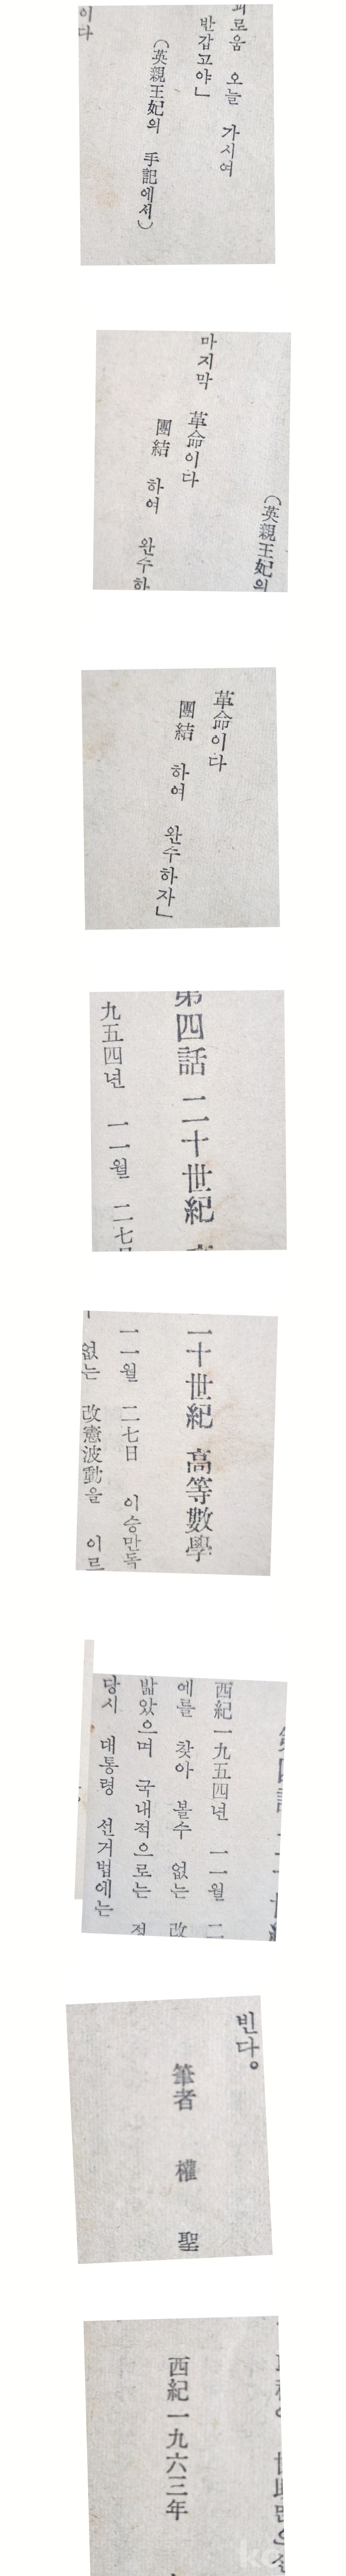 괴로움 오늘 가시여
반갑고야」
(英親王妃의 手記에서)
이다
(英親王妃의
마지막
革命이다
團結 하여 완수하
革命이다
團結 하여 완수하자」
第四話 二十世紀
九五四년 一一월 二七日
二十世紀 高等數學
一一월 二七日 이승만독
없는 改憲波動을 이르
西紀一九五四년 一一월 二
예를 찾아 볼수 없는 改
밟았으며 국내적으로는 정
당시 대통령 선거법에는
빈다。
筆者 權 聖
西紀一九六三年